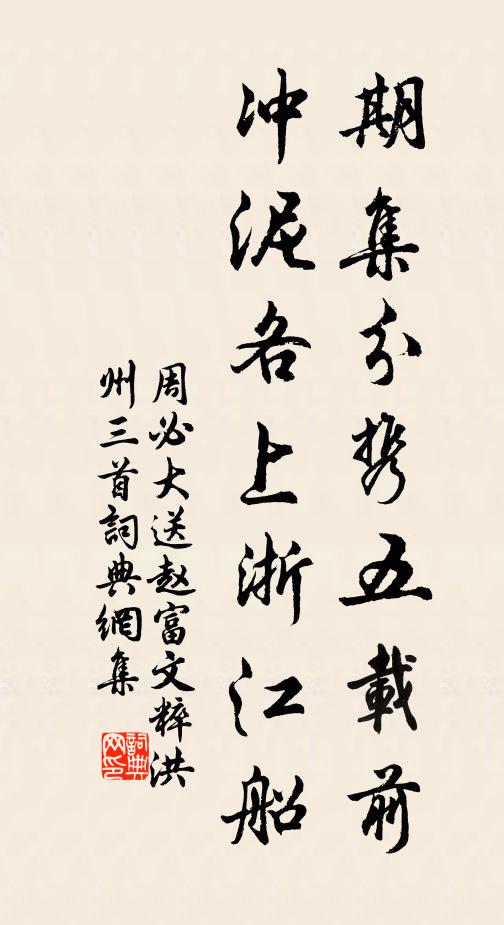 期集分携五載前
冲泥各上浙江船
周必大送赵富文粹洪
州三首詞典網集
詞典网印